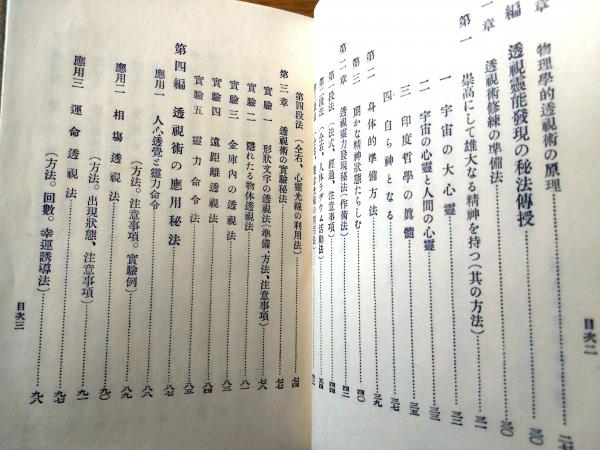 章 物理學的透視術の原理……二七
編 透視靈能發現の秘法傳授……三〇
一章 透視術修練の準備法……三〇
第一 崇高にして雄大なる精神を持つ(其の方法)……三一
一 宇宙の大心靈……三二
二 宇宙の心靈と人間の心靈……三三
三 印度哲學の眞髓……三五
四 自ら神となる……三七
第二 身体的準備方法……三九
第三 朗かな精神狀態たらしむ……四〇
第二章 透視靈力發現秘法(作術法)……四二
第一段法 (法式、經過、注意事項)……四四
第二段法 (仝右、人体ラヂウム活動法)
目次二
第四段法 (仝右、心靈光線の利用法)……七四
第三章 透視術の實驗秘法……七六
實驗一 形狀文字の透視法(準備、方法、注意事項)……七六
實驗二 隱れたる物体透視法……八一
實驗三 金庫内の透視法……八三
實驗四 遠距離透視法……八四
實驗五 靈力命令法……八五
第四編 透視術の應用秘法……八七
應用一 人心透覺と靈力命令……八七
(方法。注意事項。實驗例)
應用二 相塲透視法……九一
(方法。出現狀態、注意事項)
應用三 運命透視法……九七
(方法。回數。幸運誘導法)……九八
目次三